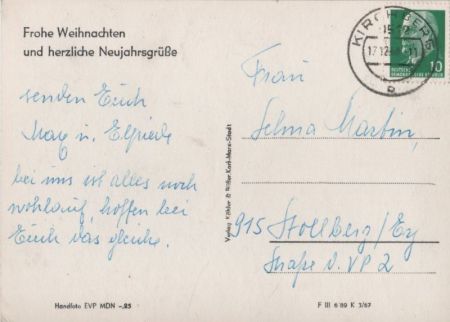 Frohe Weihnachten
und herzliche Neujahrsgrüße
senden Euch
Max u. Elfriede
bei uns ist alles noch
wohlauf, hoffen bei
Euch das gleiche.
Handfoto EVP MDN -.25
Verlag Köhler & Riffer Karl-Marx-Stadt
KIRCHBERG
b
10
DEUTSCHE
DEMOKRATISCHE REPUBLIK
Frau
Selma Martin,
915 Stollberg/Erz
Straße d. VP 2
F III 6/89 K 3/67